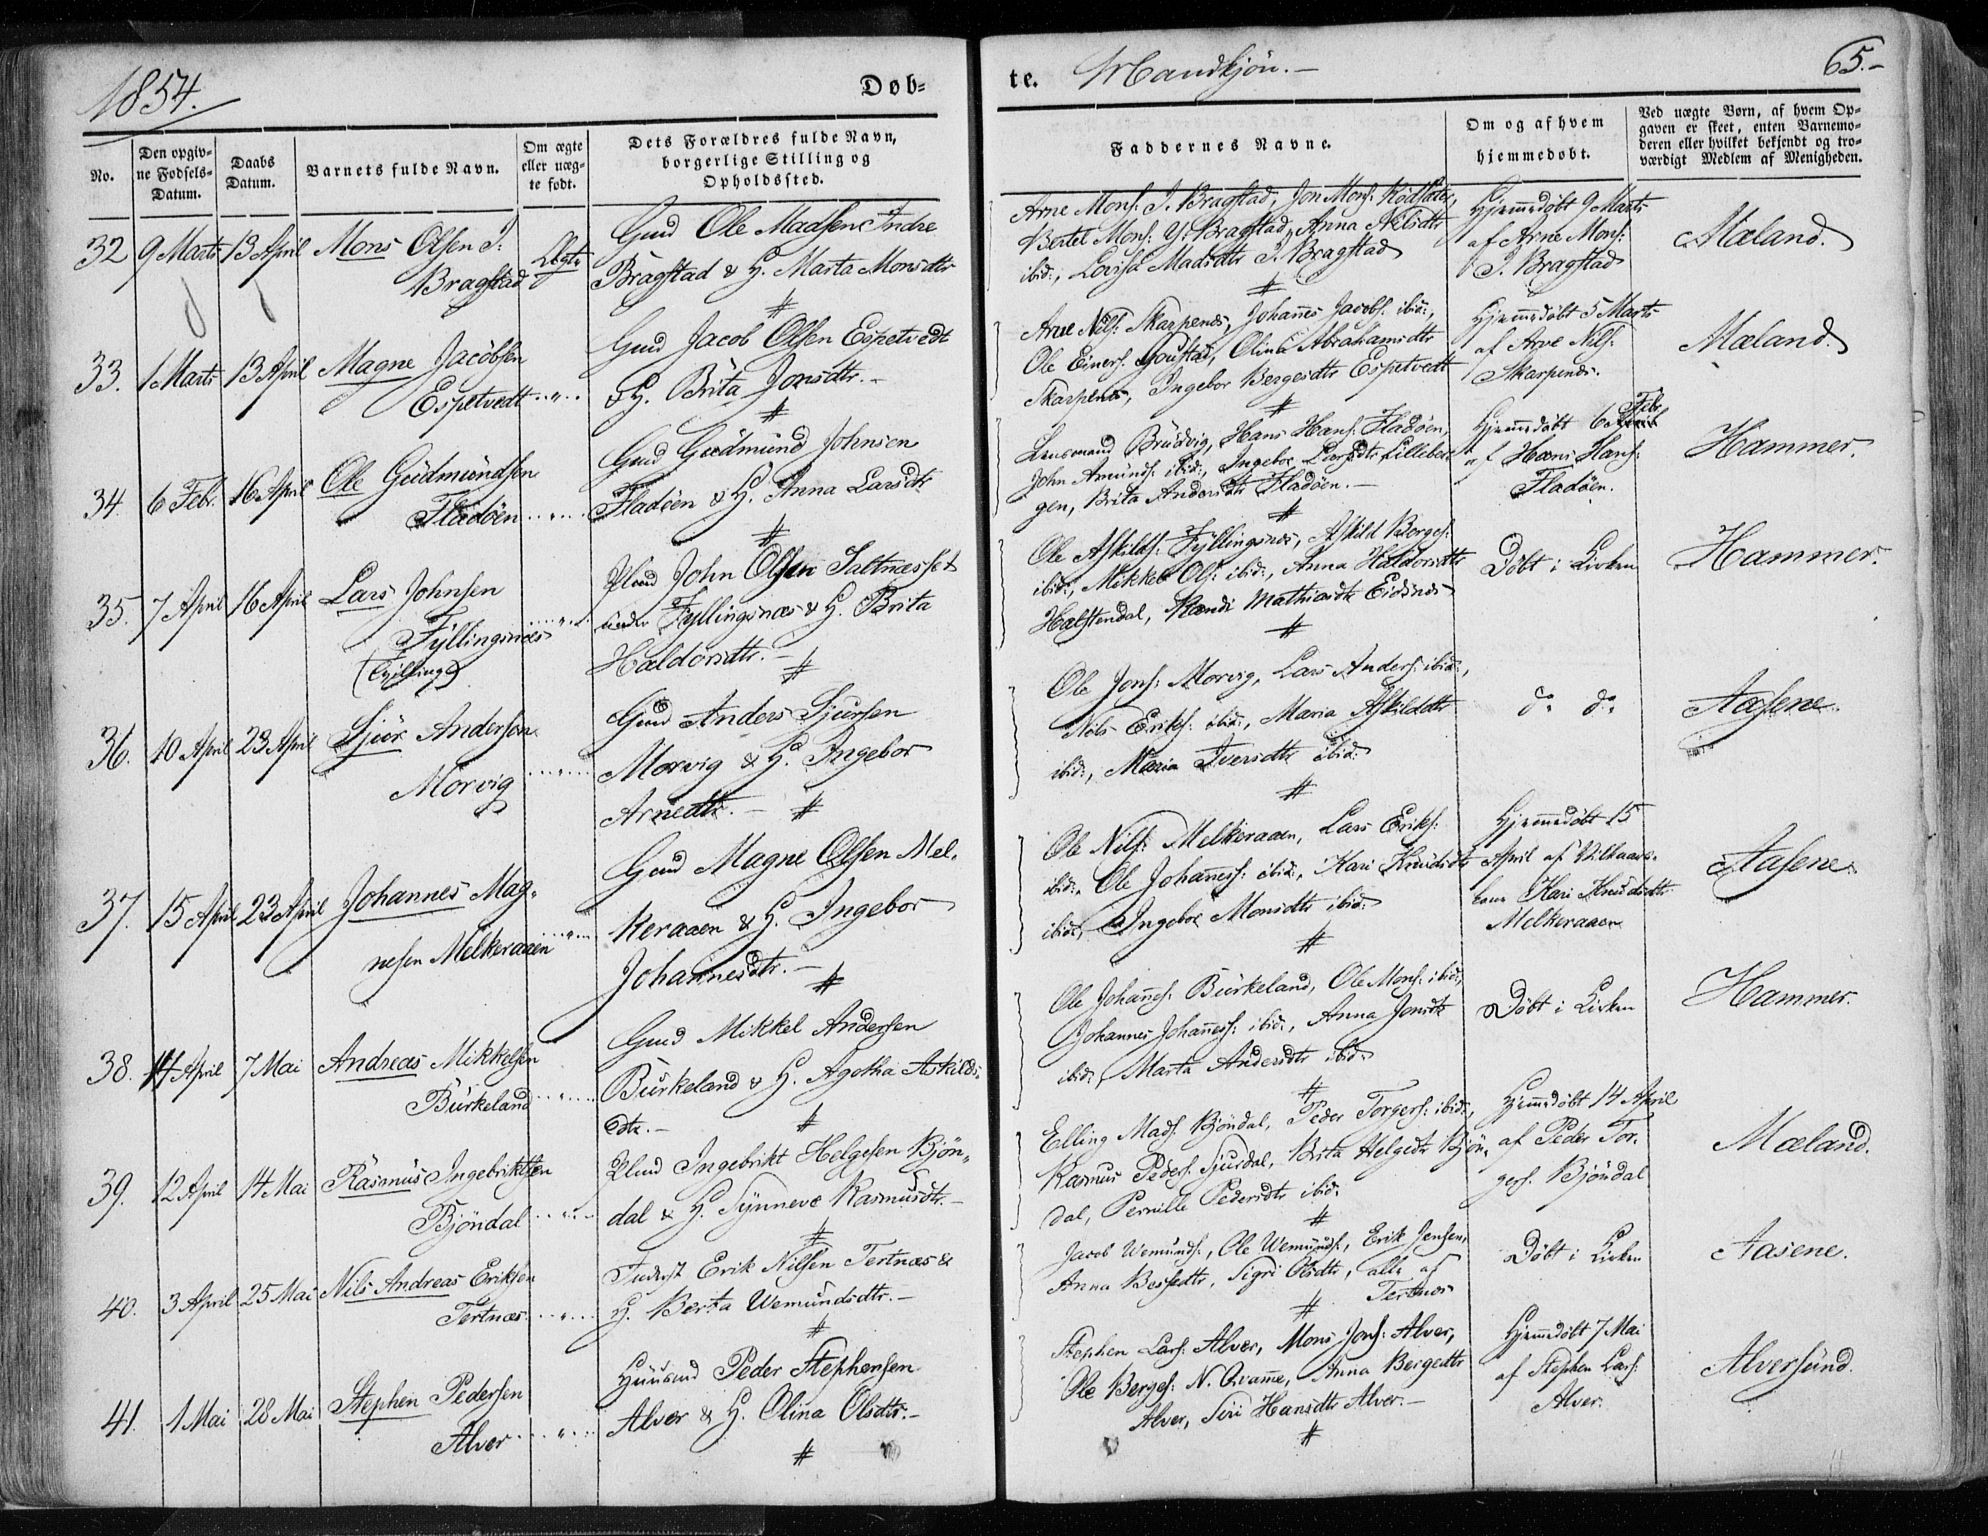 1854.
Døb-
te. Mandkjön.-
65.-
No.
Den opgiv-
ne Fødsels-
Datum.
Daabs
Datum.
Barnets fulde Navn.
Om ægte
eller uæg-
te født.
Dets Forældres fulde Navn,
borgerlige Stilling og
Opholdssted.
Faddernes Navne.
Om og af hvem
hjemmedøbt.
Ved uægte Børn, af hvem Op-
gaven er skeet, enten Barnemo-
deren eller hvilket bekjendt og tro-
værdigt Medlem af Menigheden.
32 9 Marts 13 April Mons Olsen I:
Bragstad
Ægte
Gmd Ole Madsen Indre
Bragstad & H. Marta Monsdtr
#
Arne Mons: I. Bragstad, Jon Mons: Rödsæter,
Bertel Mons: Y. Bragstad, Anna Nilsdtr
ibid:, Lovisa Madsdtr I. Bragstad
#
Hjemmedöbt 9 Marts
af Arne Mons:
I. Bragstad
Mæland.
33. 1 Marts 13 April Magne Jacobsen
Espetvedt ..„..
Gmd Jacob Olsen Espetvedt
& H. Brita Jonsdtr.-
#
Arne Nils: Skarpenes, Johannes Jacobs. ibid:,
Ole Einers. Goustad, Olina Abrahamsdtr
Skarpenes, Ingebor Bergesdtr Espetvedt
#
Hjemmedöbt 5 Marts
af Arne Nils:
Skarpenes.
Mæland.
34. 6 Febr. 16 April Ole Gudmundsen
Fladöen ..„..
Gmd Gudmund Johnsen
Fladöen & H. Anna Larsdtr
#
Lensmand Brudvig, Hans Hans. Fladöen,
John Amunds: ibid:, Ingebor Larsdtr Lilleber-
gen, Brita Andersdtr Fladöen.-
#
Hjemmedöbt 6 Febr
af Hans Hans:
Fladöen.
Hammer.
35. 7 April 16 April Lars Johnsen
Fyllingsnæs
..„..
Plmd John Olsen Saltnæsset
under Fyllingsnæs & H. Brita
Haldorsdtr.-
#
Ole Askilds: Fyllingsnes, Askild Borges:
ibid:, Mikkel Ols: ibid:, Anna Haldorsdtr
Halstendal, Randi Mathiasdtr Eidsnes
#
Döbt i Kirken
Hammer.
36. 10 April 23 April Sjur Andersen
Morvig
..„..
Gmd Anders Sjursen
Morvig & H. Ingebor
Arnedtr.- #
Ole Jons: Morvig, Lars Anders: ibid:,
Nils Eriks: ibid:, Maria Askildsdtr
ibid:, Maria Iversdtr ibid:
#
do do
Aasene.
37. 15 April 23 April Johannes Mag-
nesen Melkeraaen
..„..
Gmd Magne Olsen Mel-
keraaen & H. Ingebor
Johannesdtr.-
#
Ole Nils: Melkeraaen, Lars Eriks:
ibid:, Ole Johanness: ibid:, Kari Knudsdtr
ibid:, Ingebor Monsdtr ibid:
#
Hjemmedöbt 15
April af Vilkaars-
kone Kari Knudsdtr
Melkeraaen
Aasene.
38. 14 April 7 Mai Andreas Mikkelsen
Burkeland ..„..
Gmd Mikkel Andersen
Burkeland & H. Agotha Askilds-
dtr.-
#
Ole Johanns: Burkeland, Ole Mons: ibid:,
Johannes Johanness: ibid:, Anna Jonsdtr
ibid:, Marta Andersdtr ibid:
#
Döbt i Kirken
Hammer.
39. 12 April 14 Mai Rasmus Ingebriktsen
Bjöndal ..„..
Plmd Ingebrikt Helgesen Bjön-
dal & H. Synneve Rasmusdtr.-
#
Elling Mads. Bjöndal, Peder Torgers: ibid:,
Rasmus Peders: Sjursdal, Brita Helgedtr Bjön-
dal, Pernille Pedersdtr ibid:
#
Hjemmedöbt 14 April
af Peder Tor-
gers. Bjöndal
Mæland.
40. 3 April 25 Mai Nils Andreas Eriksen
Tertnæs ..„..
Inderst Erik Nilsen Tertnæs &
H. Berta Wemundsdtr.-
#
Jacob Wemunds:, Ole Wemunds:, Erik Jensen,
Anna Bessedtr, Sigri Olsdtr, alle af
Tertnes
#
Döbt i Kirken
Aasene.
41. 1 Mai 28 Mai Stephen Pedersen
Alver ..„..
Huusmd Peder Stephensen
Alver & H. Olina Olsdtr.-
#
Stephen Lars: Alver, Mons Jons: Alver,
Ole Berges: N. Qvamme, Anna Bergedtr
Alver, Siri Hansdtr Alver.-
#
Hjemmedöbt 7 Mai
af Stephen Lars:
Alver.
Alversund.